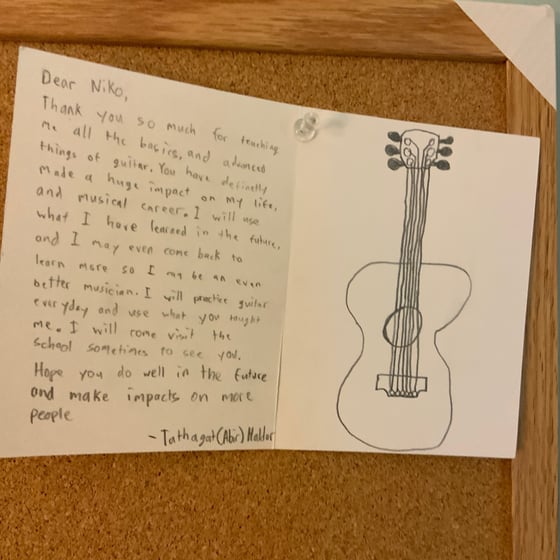 Dear Niko,
Thank you so much for teaching
me all the basics, and advanced
things of guitar. You have definetly
made a huge impact on my life,
and musical career. I will use
what I have learned in the future,
and I may even come back to
learn more so I may be an even
better musician. I will practice guitar
everyday and use what you tought
me. I will come visit the
school sometimes to see you.
Hope you do well in the future
and make impacts on more
people
- Tathagat (Abir) Haldar